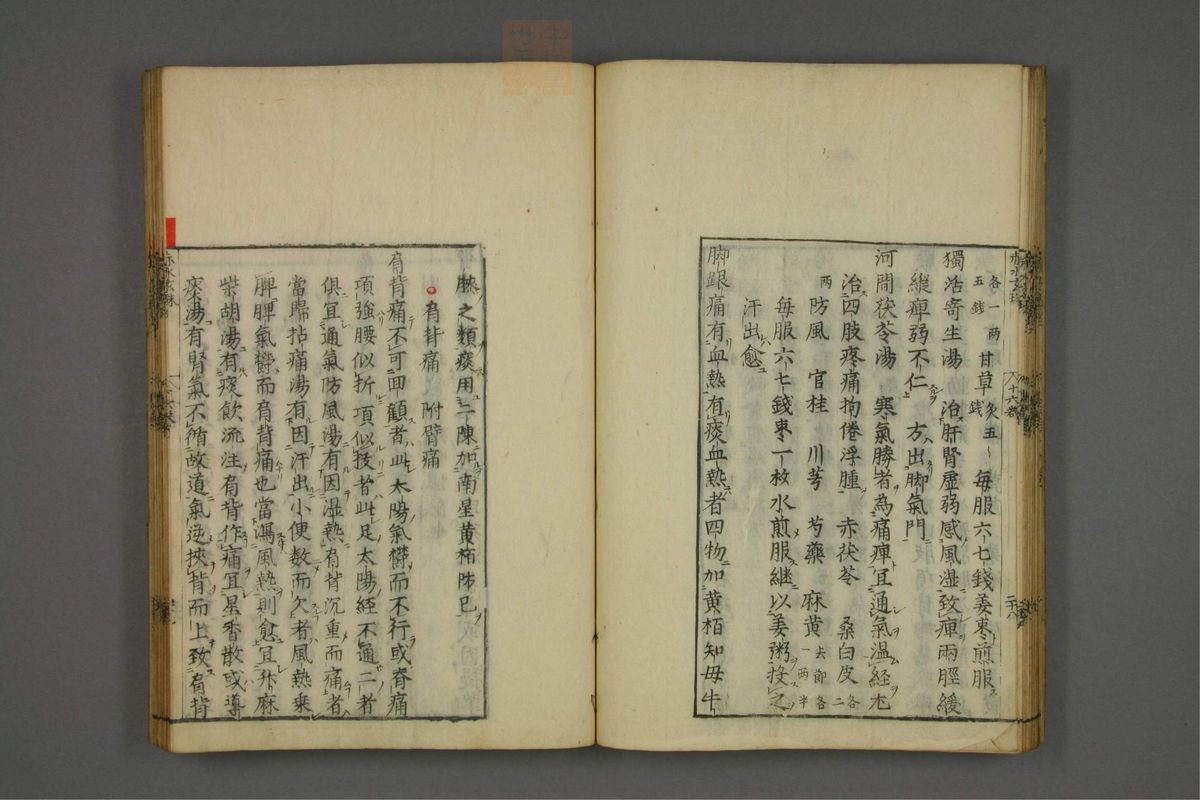 各一兩 甘草 炙五
五錢 錢 每服六七錢姜枣煎服
獨活寄生湯 治肝腎虛弱感風湿致痺兩脛緩
縱痺弱不仁 方出脚氣門
河間茯苓湯 寒氣勝者為痛痺宜通氣温経尤
治四肢疼痛拘倦浮腫 赤茯苓 桑白皮 各二
兩 防風 官桂 川芎 芍藥 麻黄 去節各一兩半
每服六七錢枣一枚水煎服継以姜粥投之
汗出愈
脚跟痛有血熱有痰血熱者四物加黄栢知母牛
膝之類痰用二陳加南星黄栢防已
肩背痛 附臂痛
肩背痛不可回顧者此太陽氣欝而不行或脊痛
項強腰似折項似拔者此足太陽経不通二者
俱宜通氣防風湯有因湿熱肩背沉重而痛者
當歸拈痛湯有因汗出小便数而欠者風熱乘
脾脾氣欝而肩背痛也當瀉風熱則愈宜升麻
柴胡湯有痰飲流注肩背作痛宜星香散或導
痰湯有腎氣不循故道氣逆挾背而上致肩背
十六卷
二十八
赤水玄珠